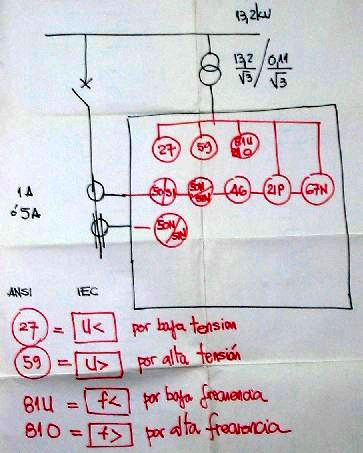 13,2kV
13,2/√3 / 0,11/√3
27 59 81U 81O
1A
ó 5A
50/51 50N/51N 46 21P 67N
50N/51N
ANSI IEC
27 = U< por baja tension
59 = U> por alta tensión
81U = f< por baja frecuencia
81O = f> por alta frecuencia